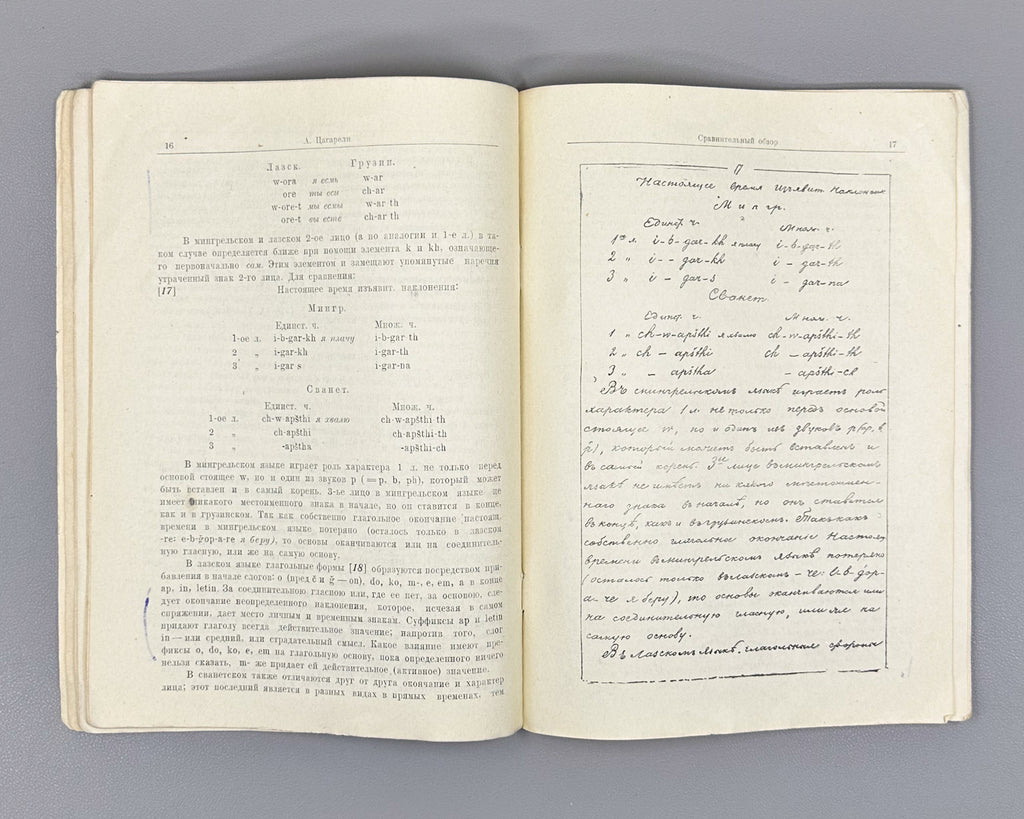 16 А. Цагарели
Лазск. Грузин.
w-ora я есмь w-ar
ore ты еси ch-ar
w-ore-t мы есмы w-ar th
ore-t вы есте ch-ar th
В мингрельском и лазском 2-ое лицо (а по аналогии и 1-е л.) в та-
ком случае определяется ближе при помощи элемента k и kh, означающе-
го первоначально сам. Этим элементом и замещают упомянутые наречия
утраченный знак 2-го лица. Для сравнения:
[17] Настоящее время изъявит. наклонения:
Мингр.
Единст. ч. Множ. ч.
1-ое л. i-b-gar-kh я плачу i-b-gar th
2 „ i-gar-kh i-gar-th
3 „ i-gar s i-gar-na
Сванет.
Единст. ч. Множ. ч.
1-ое л. ch-w-apšthi я хвалю ch-w-apšthi th
2 „ ch-apšthi ch-apšthi-th
3 „ -apštha -apšthi-ch
В мингрельском языке играет роль характера 1 л. не только перед
основой стоящее w, но и один из звуков p (= p, b, ph), который может
быть вставлен и в самый корень. 3-ье лицо в мингрельском языке не
имеет никакого местоименного знака в начале, но он ставится в конце,
как и в грузинском. Так как собственно глагольное окончание настоящ.
времени в мингрельском языке потеряно (осталось только в лазском
-re: e-b-žop-a-re я беру), то основы оканчиваются или на соединитель-
ную гласную, или же на самую основу.
В лазском языке глагольные формы [18] образуются посредством при-
бавления в начале слогов: o (пред č и ǧ — on), do, ko, m-, e, em, a в конце
ap, in, letin. За соединительною гласною или, где ее нет, за основою, сле-
дует окончание неопределенного наклонения, которое, исчезая в самом
спряжении, дает место личным и временным знакам. Суффиксы ap и letin
придают глаголу всегда действительное значение; напротив того, слог
in — или средний, или страдательный смысл. Какое влияние имеют пре-
фиксы o, do, ko, e, em на глагольную основу, пока определенного ничего
нельзя сказать, m- же придает ей действительное (активное) значение.
В сванетском также отличаются друг от друга окончание и характер
лица; этот последний является в разных видах в прямых временах, тем
Сравнительный обзор 17
Настоящее время изъявит. наклонения
Мингр.
Единст. ч. Множ. ч.
1ое л. i-b-gar-kh я плачу i-b-gar-th
2 „ i - gar-kh i - gar-th
3 „ i - gar-s i - gar-na
Сванет.
Единст. ч. Множ. ч.
1 „ ch-w-apšthi я хвалю ch-w-apšthi-th
2 „ ch - apšthi ch - apšthi-th
3 „ - apštha - apšthi-ch
Въ мингрельскомъ языкѣ играетъ роль
характера 1 л. не только передъ основой
стоящее w, но и одинъ изъ звуковъ p (=p, b,
который можетъ быть вставленъ и
въ самый корень. 3ье лице въ мингрельскомъ
языкѣ не имѣетъ никакого мѣстоимен-
наго знака въ началѣ, но онъ ставится
въ концѣ, какъ и въ грузинскомъ. Такъ какъ
собственно глагольное окончаніе настоящ
времени въ мингрельскомъ языкѣ потеряно
(осталось только въ лазскомъ
я беру), то основы оканчиваются или
на соединительную гласную, или же на
самую основу.
Въ Лазскомъ языкѣ глагольныя формы